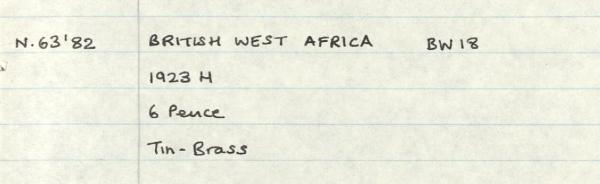 N.63'82 BRITISH WEST AFRICA BW18
1923 H
6 Pence
Tin-Brass